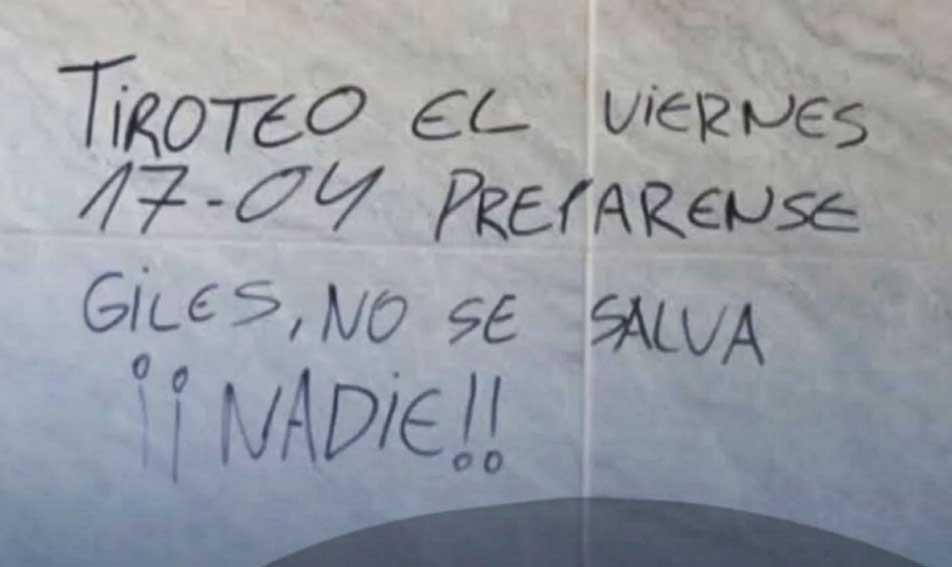 TiROTEO EL ViERNES
17-04 PREPARENSE
GiLES, NO SE SALVA
¡¡NADiE!!